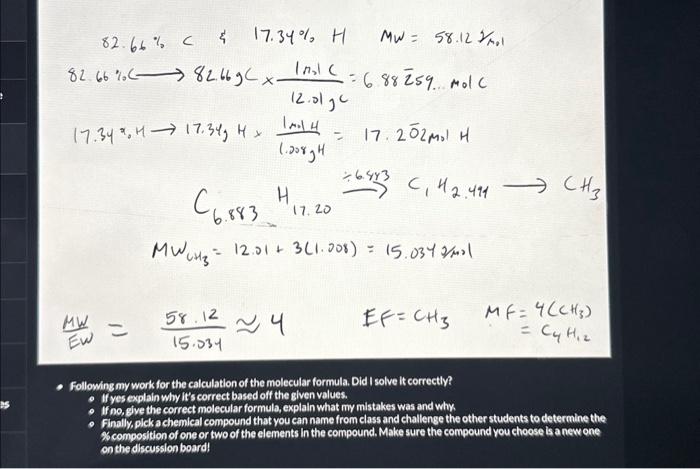 82.66 % C & 17.34 % H MW = 58.12 g/mol
82.66 % C → 82.66 g C × 1 mol C / 12.01 g C = 6.88259... mol C
17.34 % H → 17.34 g H × 1 mol H / 1.008 g H = 17.202 mol H
C6.883 H17.20 ÷6.883 → C1 H2.499 → CH3
MWCH3 = 12.01 + 3(1.008) = 15.034 g/mol
MW / EW = 58.12 / 15.034 ≈ 4 EF = CH3 MF = 4(CH3)
= C4H12
• Following my work for the calculation of the molecular formula. Did I solve it correctly?
o If yes explain why it's correct based off the given values.
o If no, give the correct molecular formula, explain what my mistakes was and why.
o Finally, pick a chemical compound that you can name from class and challenge the other students to determine the
% composition of one or two of the elements in the compound. Make sure the compound you choose is a new one
on the discussion board!
es